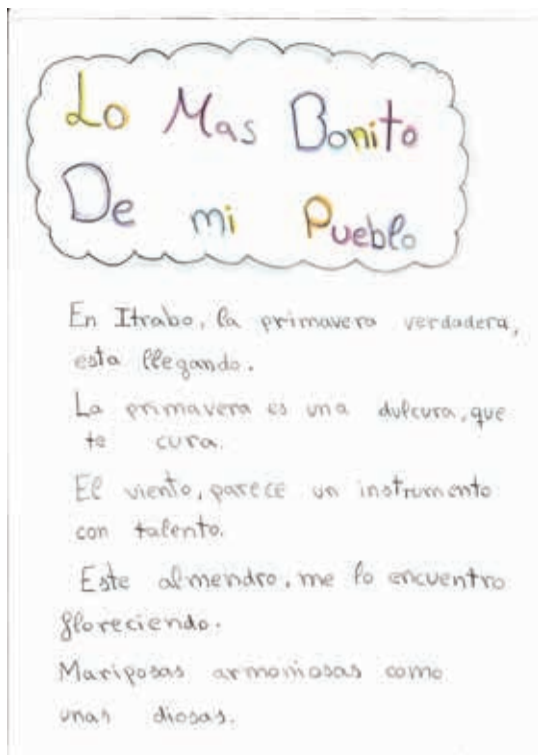 Lo Mas Bonito
De mi Pueblo
En Itrabo, la primavera verdadera,
esta llegando.
La primavera es una dulcura, que
te cura.
El viento, parece un instrumento
con talento.
Este almendro, me lo encuentro
floreciendo.
Mariposas armoniosas como
unas diosas.